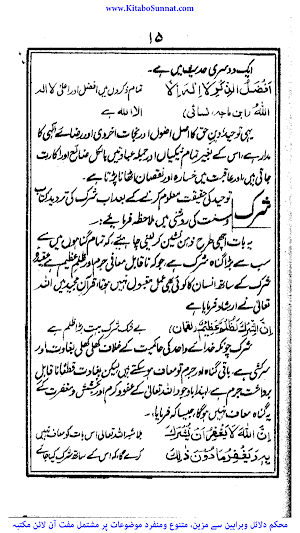 www.KitaboSunnat.com
۱۵
ایک دوسری حدیث میں ہے۔
اَفْضَلُ الذِّكْرِ لَا اِلٰهَ اِلَّا تمام ذکروں میں افضل اور اعلیٰ لا الہ
اللهُ (ابن ماجہ، نسائی) الا اللہ ہے
یہی توحید دین حق کا اصل اصول اور نجات اخروی اور رضائے الٰہی کا
مدار ہے، اس کے بغیر تمام نیکیاں اور جملہ عبادتیں بالکل ضائع اور اکارت
جاتی ہیں، اور عاقبت میں خسارہ اور نقصان اٹھانا پڑتا ہے۔
شرک
توحید کی حقیقت معلوم کرنے کے بعد اب شرک کی تردید کتاب
وسنت کی روشنی میں ملاحظہ فرمایئے:۔
یہ بات اچھی طرح ذہن نشین کر لینی چاہیئے کہ تمام گناہوں میں سے
سب سے بڑا گناہ شرک ہے، جو کہ ناقابل معافی جرم اور ظلم عظیم ہے
شرک کے ساتھ انسان کا کوئی بھی عمل مقبول نہیں ہوتا، قرآن مجید میں اللہ
تعالیٰ نے ارشاد فرمایا ہے
اِنَّ الشِّرْكَ لَظُلْمٌ عَظِيْمٌ (لقمان) بے شک شرک بہت بڑا ظلم ہے
شرک چونکہ خدائے واحد کی حاکمیت کے خلاف کھلی کھلی بغاوت اور
سرکشی ہے، باقی گناہ اور جرم تو معاف ہو سکتے ہیں لیکن بغاوت قطعاً ناقابل
برداشت جرم ہے، لہٰذا باوجود اللہ تعالیٰ کے عفو و کرم اور بخشش و مغفرت کے
یہ گناہ معاف نہیں ہوگا، جیسا کہ فرمایا۔
اِنَّ اللهَ لَا يَغْفِرُ اَنْ يُّشْرَكَ بلاشبہ اللہ تعالیٰ اس بات کو معاف نہیں
بِهٖ وَيَغْفِرُ مَا دُوْنَ ذٰلِكَ کرے گا، کہ اس کے ساتھ شرک کیا جائے
محکم دلائل وبراہین سے مزین، متنوع ومنفرد موضوعات پر مشتمل مفت آن لائن مکتبہ